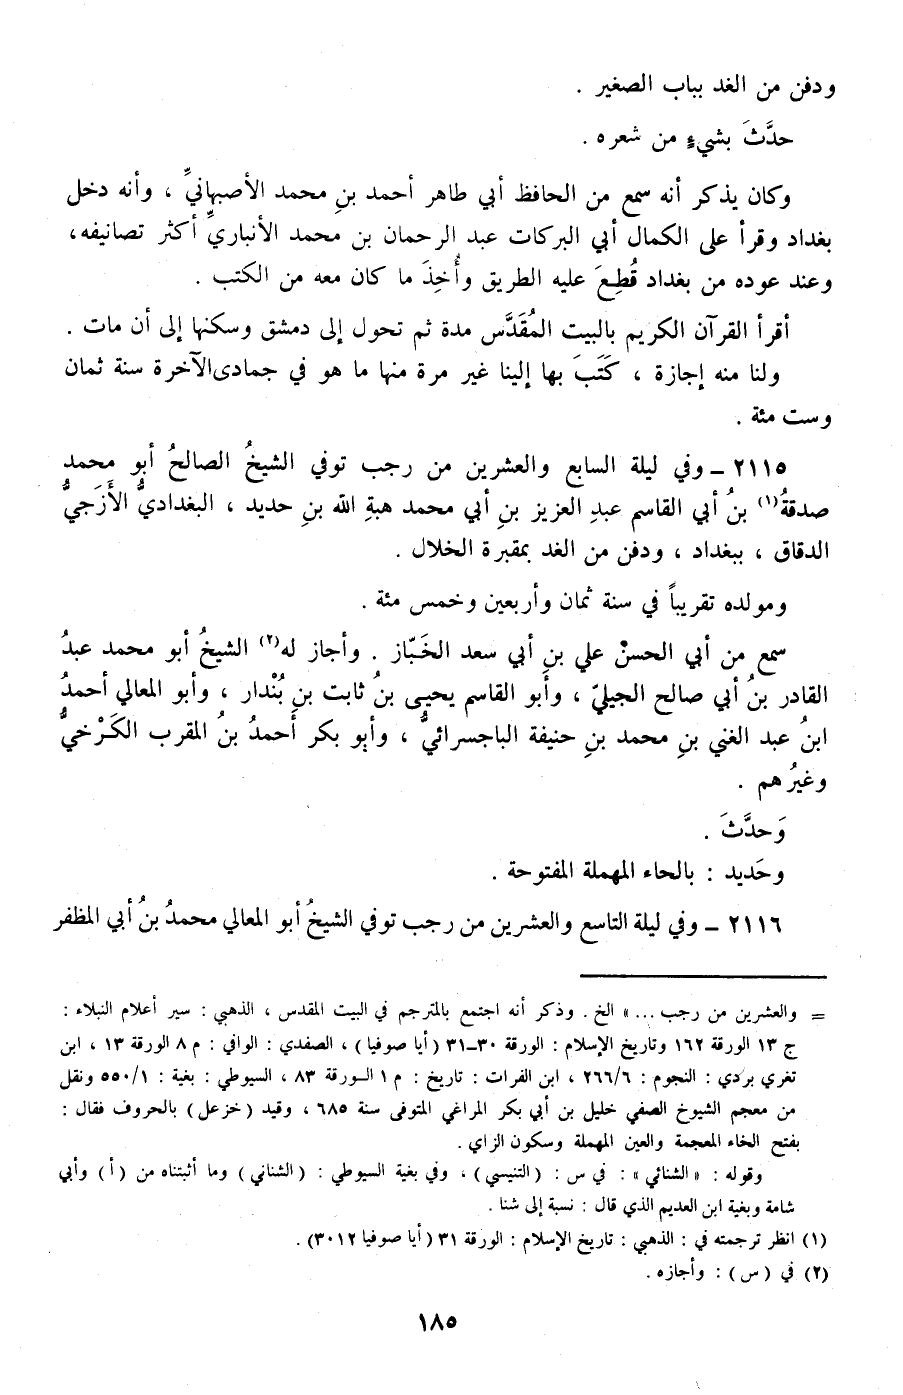 ودفن من الغد بباب الصغير .
حدَّثَ بشيءٍ من شعره .
وكان يذكر أنه سمع من الحافظ أبي طاهر أحمد بنِ محمد الأصبهانيِّ ، وأنه دخل
بغداد وقرأ على الكمال أبي البركات عبد الرحمان بن محمد الأنباريِّ أكثر تصانيفه،
وعند عوده من بغداد قُطِعَ عليه الطريق وأُخِذَ ما كان معه من الكتب .
أقرأ القرآن الكريم بالبيت المُقَدَّس مدة ثم تحول إلى دمشق وسكنها إلى أن مات .
ولنا منه إجازة ، كَتَبَ بها إلينا غير مرة منها ما هو في جمادى الآخرة سنة ثمان
وست مئة .
٢١١٥ ــ وفي ليلة السابع والعشرين من رجب توفي الشيخُ الصالحُ أبو محمد
صدقةُ(١) بنُ أبي القاسم عبدِ العزيز بنِ أبي محمد هبةِ الله بنِ حديد ، البغداديُّ الأَزَجيُّ
الدقاق ، ببغداد ، ودفن من الغد بمقبرة الخلال .
ومولده تقريباً في سنة ثمان وأربعين وخمس مئة .
سمع من أبي الحسنْ علي بنِ أبي سعد الخَبّاز . وأجاز له(٢) الشيخُ أبو محمد عبدُ
القادر بنُ أبي صالح الجيليّ ، وأبو القاسم يحيـى بنُ ثابت بنِ بُنْدار ، وأبو المعالي أحمدُ
ابنُ عبد الغني بنِ محمد بنِ حنيفة الباجسرائيُّ ، وأبو بكر أحمدُ بنُ المقرب الكَرْخيُّ
وغيرُهم .
وَحدَّثَ .
وحَديد : بالحاء المهملة المفتوحة .
٢١١٦ ــ وفي ليلة التاسع والعشرين من رجب توفي الشيخُ أبو المعالي محمدُ بنُ أبي المظفر
= والعشرين من رجب ... » الخ . وذكر أنه اجتمع بالمترجم في البيت المقدس ، الذهبي : سير أعلام النبلاء :
ج ١٣ الورقة ١٦٢ وتاريخ الإسلام : الورقة ٣٠ــ٣١ (أيا صوفيا) ، الصفدي : الوافي : م ٨ الورقة ١٣ ، ابن
تغري بردي : النجوم : ٢٦٦/٦ ، ابن الفرات : تاريخ : م ١ الورقة ٨٣ ، السيوطي : بغية : ٥٥٠/١ ونقل
من معجم الشيوخ الصفي خليل بن أبي بكر المراغي المتوفى سنة ٦٨٥ ، وقيد (خزعل) بالحروف فقال :
بفتح الخاء المعجمة والعين المهملة وسكون الزاي .
وقوله : « الشنائي » : في س : (التنيسي) ، وفي بغية السيوطي : (الشناني) وما أثبتناه من (أ) وأبي
شامة وبغية ابن العديم الذي قال : نسبة إلى شنا .
(١) انظر ترجمته في : الذهبي : تاريخ الإسلام : الورقة ٣١ (أيا صوفيا ٣٠١٢) .
(٢) في (س) : وأجازه .
١٨٥